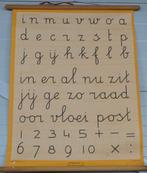 i n m u v w o a
d e c r z s t p
j g ij h k l f b
in er al nu zit
jij ge zo raad
oor vloei post
1 2 3 4 5 + - =
6 7 8 9 10 × :